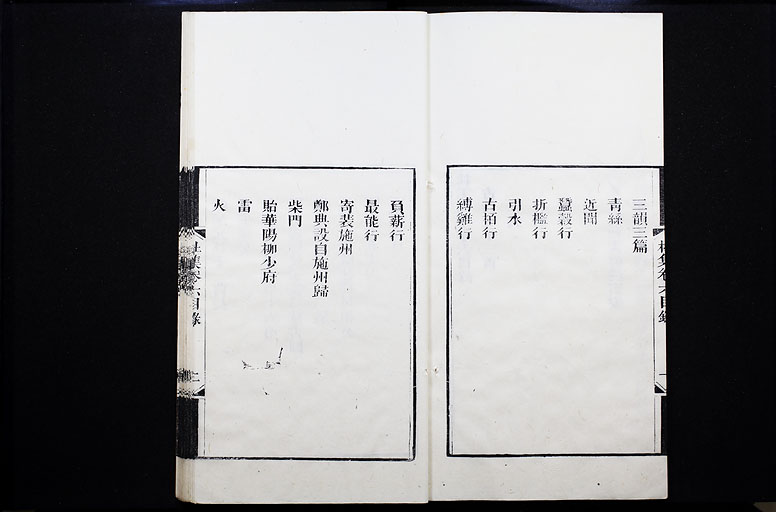 三韻三篇
青絲
近聞
蠶穀行
折檻行
引水
古栢行
縛雞行
負薪行
最能行
寄裴施州
鄭典設自施州歸
柴門
貽華陽柳少府
雷
火
杜集卷六目錄
二